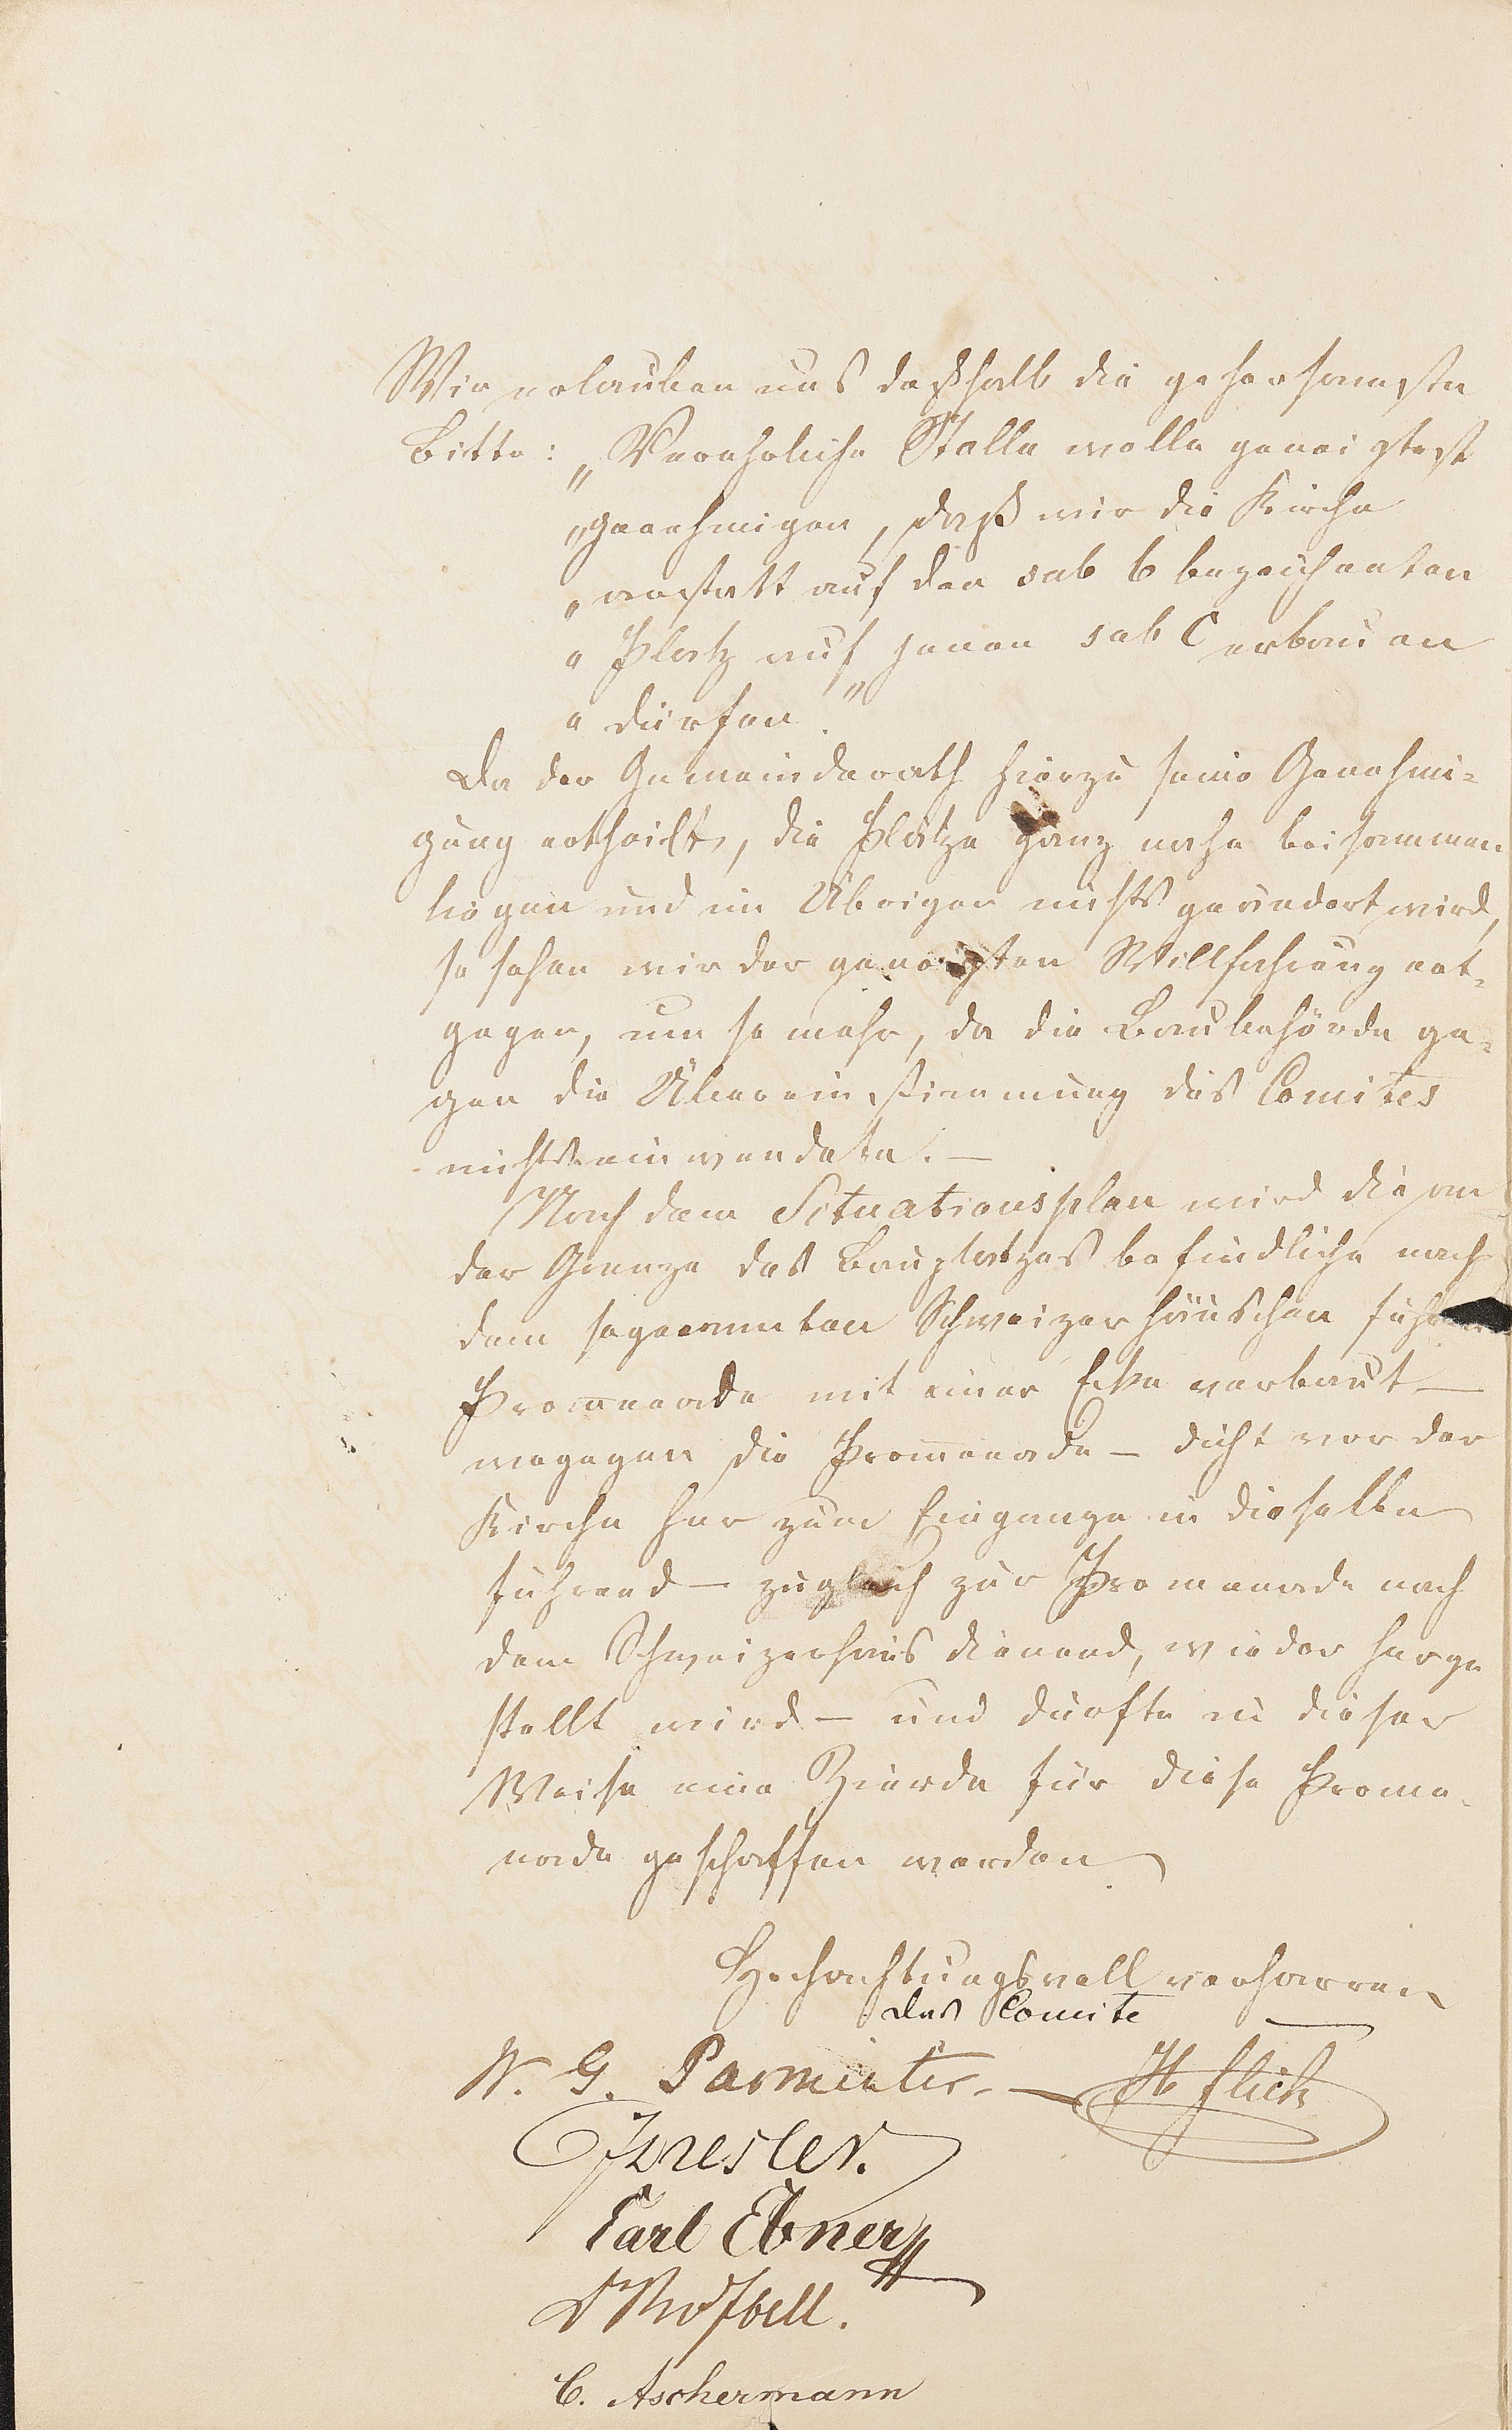 Wir erlauben uns deßhalb die gehorsamste
Bitte: „Verehrliche Stelle wolle geneigtest
„genehmigen, daß wir die Kirche
„anstatt auf den sub b bezeichneten
„Platz auf jenen sub C erbauen
„dürfen.“
Da der Gemeinderath hierzu seine Genehmi-
gung ertheilt, die Plätze ganz nahe beisammen
liegen und im Übrigen nichts geändert wird,
so sehen wir der geneigten Willfahrung ent-
gegen, um so mehr, da die Baubehörde ge-
gen die Übereinstimmung des Comites
nichts einwendete. —
Nach dem Situationsplan wird die an
der Grenze des Bauplatzes befindliche nach
dem sogenannten Schweizerhäuschen
Promenade mit einer Ecke verbaut —
wogegen die Promenade — dicht vor der
Kirche her zum Eingange in dieselbe
führend — zugleich zur Promenade nach
dem Schweizerhaus dienend, wieder herge
stellt wird — und dürfte in dieser
Weise eine Zierde für diese Prome-
nade geschaffen werden
Hochachtungsvoll verharren
das Comite
W. G. Parminter. — Flick
Carl Ebner
C. Aschermann